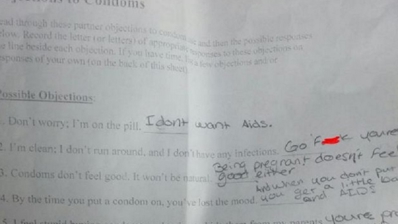 to Condoms
ead through these partner objections to condoms and then the possible responses
low. Record the letter (or letters) of appropriate responses to these objections on
line beside each objection. If you have time,
sponses of your own (on the back of this sheet)
Possible Objections:
1. Don't worry; I'm on the pill. I dont want Aids.
2. I'm clean; I don't run around, and I don't have any infections. Go F k youre
3. Condoms don't feel good. It won't be natural. Being pregnant doesn't feel
good either
4. By the time you put a condom on, you've lost the mood. And when you don't put
you get a little
and AIDS